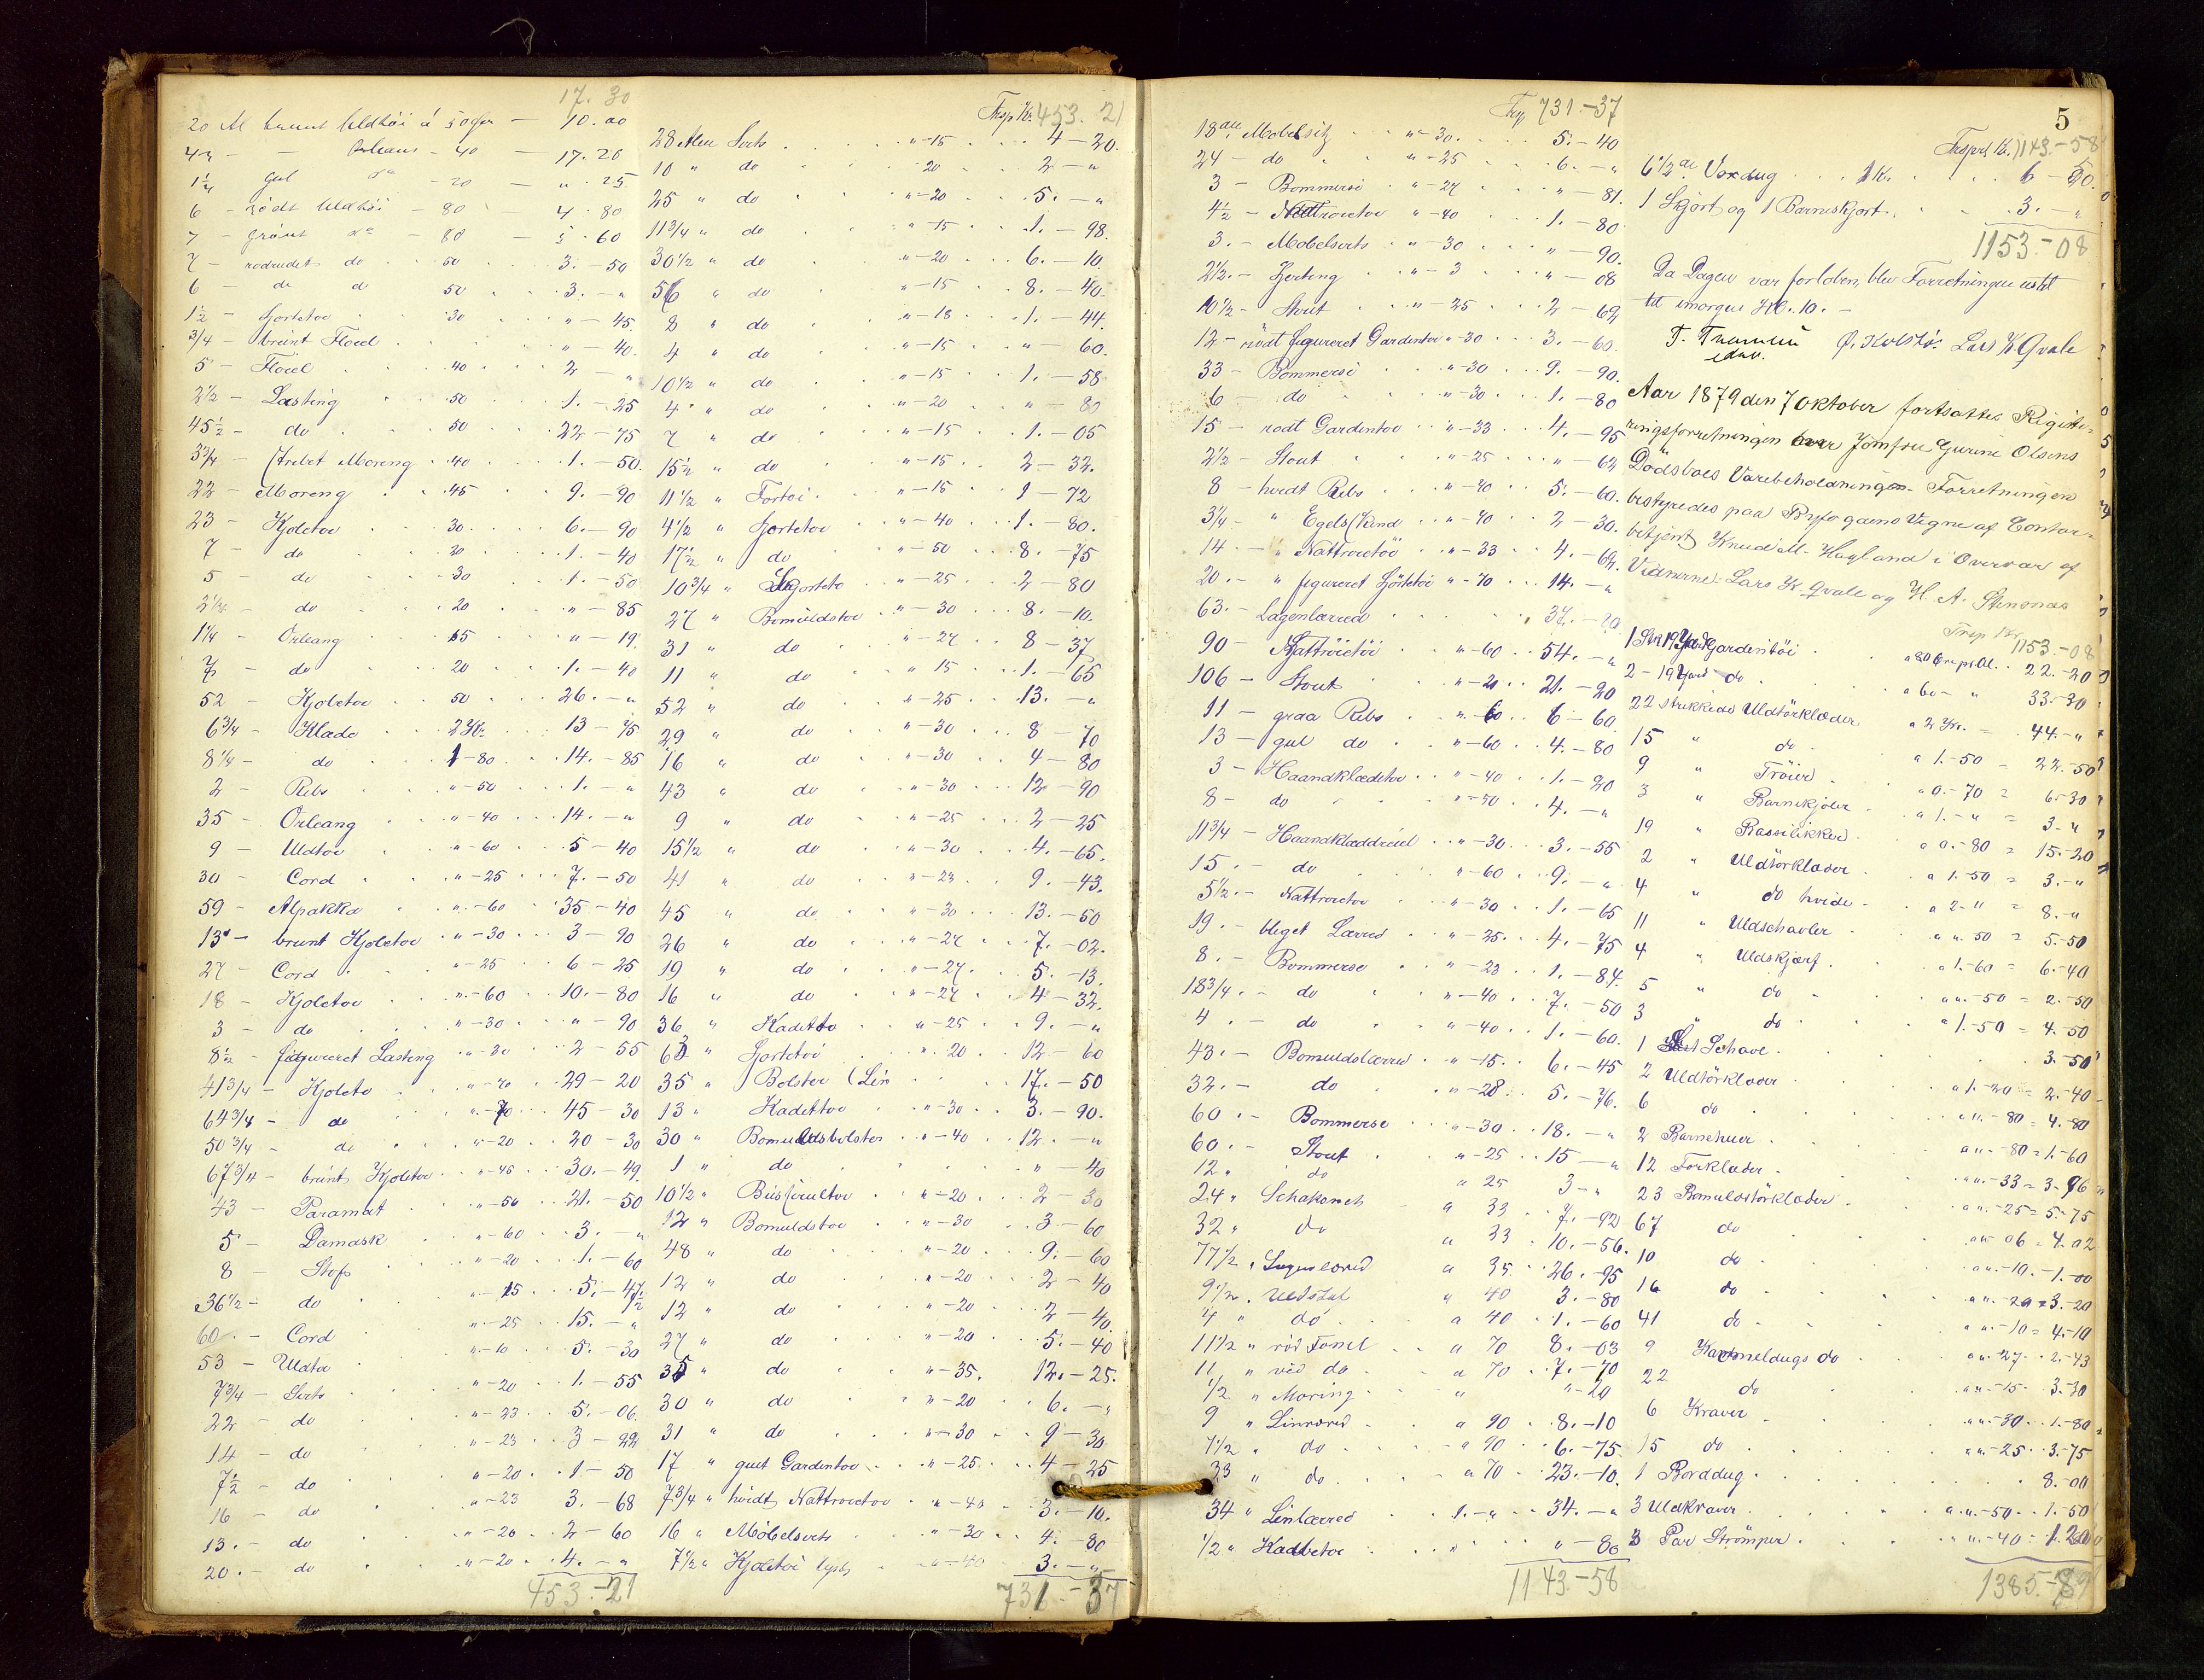 17. 30
20 Al brunt Uldtöi à 50 ger — 10. 00
43 - - Orleans - 40 — 17. 20
1¼ gul do - 20 — " . 25
6 - rödt Uldtöi - 80 - 4. 80
7 - grönt do - 80 — 5. 60
7 - rodrudet do . 50 . . 3. - 50
6 - do d 50 . . 3. - "
1½ - Hjortetoi . 30 . . " - 45.
3/4 - brunt Floiel . . . " - 40.
5 - Floiel . 40 . . 2 - "
2½ - Lasting . 50 . . 1. - 25
45½ - do . . 50 . . 22 - 75
3¾ - Moreng . 40 . . . 1. - 50.
22 - Moreng . . 45 . . 9. - 90
23 - Kjoletoi . . 30 . . . 6. - 90
7 - do . . 20 . . . 1. - 40
5 - do . 30 . . . 1. - 50
2¼ - do . . 20 . . . " - 85
1¼ - Orleang . . 15 . . . " - 19.
7 - do . . 20 . . . 1. - 40
52 - Kjoletoi . . 50 . . 26. - "
6¾ - Klæde . . 2 Kr. . . 13 - 75
8¼ - do . . 1 - 80 . . . 14. - 85
2 - Rebs . . " - 50 . . . 1. - "
35 - Orleang . . " - 40 . . . 14. - "
9 - Uldtoi . . " - 60 . . . 5 - 40
30 - Cord . . " - 25 . . . 7. - 50
59 - Alpakka . . " - 60 . . 35 - 40
13 - brunt Kjoletoi . " - 30 . . . 3 - 90
27 - Cord . . . " - 25 . . 6 - 25
18 - Kjoletoi . . . " - 60 . . 10. - 80
3 - do . . . " - 30 . . . " - 90
8½ - figureret Lasting . " - 30 . . 2 - 55
41¾ - Kjoleto . . " - 70 . . 29 - 20
64¾ - do . . " - 70 . . 45 - 30
50¾ - do . . " - 20 . . 20 - 30
67¾ - brunt Kjoletoi . . " - 45 . . 30. - 49.
43 - Paramat . . " - 50 . . 21. - 50
5 - Damask . . " - 60 . . 3. - "
8 - Stof . . " - 20 . . 1. - 60
36½ - do . . " - 15 . . 5. - 47½
60 - Cord . . " - 25 . . 15. - "
53 - Uldtoi . . " - 10 . . 5. - 30
7¾ - Sirts . . " - 20 . . 1. - 55
22 - do . . " - 23 . . 5. - 06.
14 - do . . " - 23 . . 3 - 22
7½ - do . . " - 20 . . 1 - 50
16 - do . . " - 23 3. - 68
13. - do . . " - 20 . . 2 - 60
20. - do . . " - 20 . . 4. - "
453. - 21
Trsp Kr. 453. 21
28 Alen Sirts . . " - 15 . . . 4 - 20.
10 " do . . 20 . . . 2 - "
25 " do . . " - 20 . . . 5. - "
11¾ " do . . " - 15 . . . 1. - 98.
30½ " do . . " - 20 . . 6. - 10.
56 " do . . " - 15 . . 8. - 40.
8 " do . . " - 18 . . 1. - 44.
4 " do . . " - 15 . . " - 60.
10½ " do . . " - 15 . . 1. - 58.
4 " do . . " - 20 . . " - 80
7 " do . . " - 15 . . 1. - 05
15½ " do . . " - 15 . . 2 - 32.
11½ " Fortoi . . " - 15 . . 1 - 72
4½ " Hjortetoi . . " - 40 . . 1. - 80.
17½ " do . . " - 50 . . 8. - 75
10¾ " Skjorteto . . " - 25 . . . 2 - 80
27 " Bomuldstoi . . " - 30 . . . 8. - 10.
31 " do . . " - 27 . . 8 - 37
11 " do . . " 15 . . . 1. - 65
52 " do . . " - 25 . . 13. - "
29 " do . . " - 30 . . . 8 - 70
16 " do . . " - 30 . . . 4 - 80
43 " do . . " - 30 . . . 12 - 90
9 " do . . " - 25 . . . 2 - 25
15½ " do . . " - 30 . . . 4. - 65.
41 " do . . " - 23 . . . 9. - 43.
45 " do . . " - 30 . . . 13. - 50
26 " do . . " - 27 . . . 7. - 02.
19 " do . . " - 27. . . 5. - 13.
16 " do . . " - 27 . . . 4 - 32.
36 " Kadetto . . " - 25 . . 9. - "
63 " Hjortetoi . . " - 20 . . 12 - 60
35 " Bolster (Lin . . 17. - 50
13 " Kadettoi . . " - 30 . . 3. - 90.
30 " Bomuldsbolster . . " - 40 . . 12. - "
1 " do . . . " - 40
10½ " . . " - 20 . . . 2 - 30
12 " Bomuldstoi . . " - 30 . . . 3 - 60
48 " do . . " - 20 . . . 9. - 60
12 " do . . " - 20 . . . 2 - 40
12 " do . . " - 20 . . . 2 - 40.
27 " do . . " - 20 . . . 5. - 40
35 " do . . " - 35. . . 12. - 25.
30 " do . . " - 20 . . 6. - "
31 " do . . " - 30 . . 9 - 30
17 " gult Gardintoi . . " - 25 . . . 4 - 25
7¾ " hvidt Nattroietoi . . " - 40 . . 3. - 10.
16 " Möbelsirts . . " - 30 . . 4. - 80
7½ " Kjoletoi lyst . . " - 40 . . 3. - "
731. - 37
Trsp 731. - 37
18 ale Mobelsitz . . " - 30. . . . 5. - 40
24 - do . . " - 25 . . . 6. - "
3 - Bommersi . . " - 27 . . . " - 81.
4½ - Nattroietoi " - 40 . . . 1. - 80
3. - Mobelsirts . . " - 30 . . . " - 90.
2½. - Sjerting . . " - 3 . . . " - 08
10½ - Stout . . " - 25 . . . 2 - 62
12 - rödt figureret Gardintoi " - 30 . . . 3. - 60.
33 - Bommersi . . " - 30 . . 9. - 90.
6 - do . . " - 30 . . . 1. - 80
15 - rodt Gardintoi . . " - 33 . . . 4. - 95
2½ - Stout . . " - 25 . . . " - 62
8 - hvidt Rebs . . " - 70 . . . 5. - 60.
3¼ - " Egelskind . . " - 70 . . 2 - 30.
14. - " Nattroietöi . . " - 33 . . . 4. - 62.
20. - " figureret Hjörtetöi " - 70 . . . 14. - "
63. - Lagenlærred . . . 37. - 20
90 - Nattröietöi . . " - 60 . . 54. - "
106 - Stout . . " - 20 . . 21. - 20
11 - graa Rebs . . " - 60 . . 6 - 60
13 - gul do . . " - 60 . . 4. - 80
3 - Haandklædetoi . . " - 40 . . . 1. - 20
8 - do . . " - 50 . . 4. - "
11¾ - Haandklæddreiel . . " - 30. . . 3. - 55
15. - do . . " - 60 . . 9. - "
5½. - Nattroietoi . . " - 30 . . 1. - 65
19. - bleget Lærred . . " - 25. . . 4. - 75
8. - Bommerse . . " - 23 . . 1. - 84.
18¾. - do . . " - 40 . . 7. - 50
4. - do . . " - 40 . . 1. - 60.
43. - Bomuldslærred . . " - 15. . 6. - 45
32. - do . . " - 28 . . 5. - 76.
60. - Bommerse . . . " - 30 . . 18. - "
60. - Stout . . " - 25 . . 15 - "
12 " do " 25 3 - "
24 " Schakonet a 33 . . 7. - 92
32 " do a 33 . 10. - 56.
77½ " Lagenlærred a 35 . . 26. - 95
9½ " Uldstut " 40 3. - 80
4 " do . . a 40 . 1. - 60
11½ " röd Fonel . . a 70 8. - 03
11 " vid do . . a 70 . 7. - 70
½ " Moring . . " " - 20
9 " Linlærred . . a 90 . 8. - 10
7½ " do . . " 90 . . 6. - 75
33 " do . . a 70 . 23. - 10.
34 " Linlærred . . 1. - " . . 34. - "
½ " Kadbetoi . . . " - 80
1143. - 58
5
Trsprt Kr. 1143. - 58
6½ ae Voxdug . . . 1 K. . . . 6 - 50.
1 Skjört og 1 Barneskjort . . . 3. - "
1153. - 08
Da Dagen var forløben, blev Forretningen udsat
til imorgen Kl. 10. -
T. Ø. Kolstö. Lars K Qvale
Aar 1879 den 7 oktober fortsattes Registe-
ringsforretningen over Jomfru Gurine Olsens
Dödsboes Varebeholdningen. Forretningen
bestyredes paa Byfogdens Vegne af Contor-
betjent Knud M. Hagland i Overvær af
Vidnerne: Lars K. Qvale og H. A. Stensnæs
Trsp Kr. 1153. - 08
1 Stk 19 Yard Gardentöi . . a 80 Öre pr Al. . . 22. - 20
2 - 19 Yard do . . a 60 - " 33. - 30
22 strikkede Uldtörklæder a 2 Kr. = 44. - "
15 " do . a 1. - 50 = 22. - 50
9 " Tröier . . a 0. - 70 = 6. - 30
3 " Barnekjoler . . a 1. - " = 3. - "
19 " Rassilikker . . a 0. - 80 = 15. - 20
2 " Uldtörklæder . . a 1. - 50 = 3. - "
4 " do hvide . . a 2 - " = 8. - "
11 " Uldschavler . . a ". 50 = 5. - 50
4 " Uldskjærf . . a 1. - 60 = 6. - 40
5 " do . . a ". - 50 = 2. - 50
3 " do . . a 1. - 50 = 4. - 50
1 Schavl . . . 3. - 50
2 Uldtörklæder . . a 1. - 20 = 2. - 40
6 do . . a ". - 80 = 4. - 80
2 Barnehuer . . a ". - 80 = 1. - 60
12 Forklæder . . a ". - 33 = 3. - 96
23 Bomuldstörklæder . . a ". - 25 = 5. - 75
67 do . . a ". 06 = 4. 02
10 do . . a ". - 10. - 1. - 00
16 do . . a ". - 20 = 3. - 20
41 do . . a ". - 10 = 4. - 10
9 Kammeldugs do . . a ". - 27 . . 2. - 43
22 do . . a ". - 15 . . 3. - 30
6 Kraver . . a ". - 30 . . 1. - 80
15 do . . a ". - 25 . . 3. - 75
1 Borddug . . . 8. - 00
3 Uldkraver . . a ". - 50 . . 1. - 50
3 Par Strömper . . " ". - 40 = 1. 20
1385. - 89